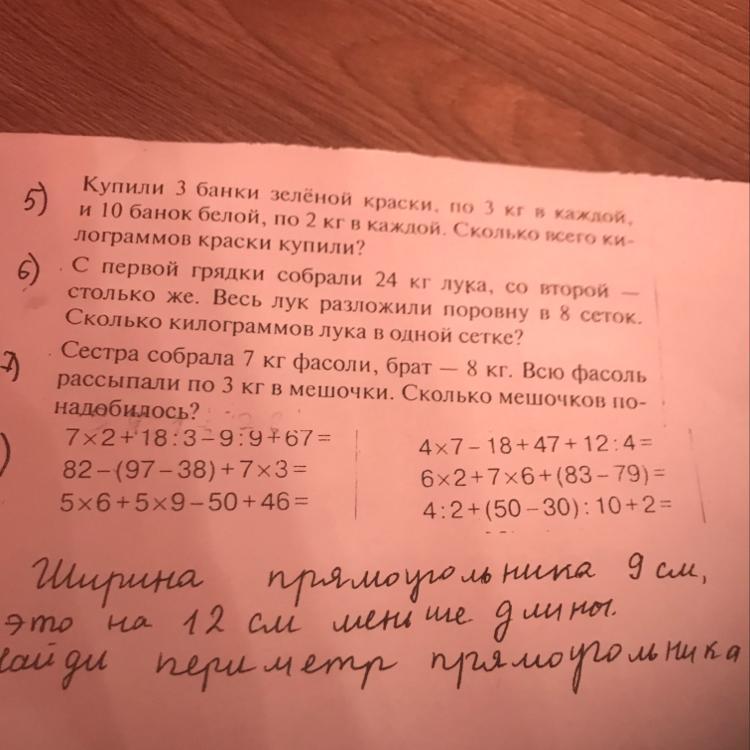 5) Купили 3 банки зелёной краски, по 3 кг в каждой,
и 10 банок белой, по 2 кг в каждой. Сколько всего ки-
лограммов краски купили?
6) С первой грядки собрали 24 кг лука, со второй —
столько же. Весь лук разложили поровну в 8 сеток.
Сколько килограммов лука в одной сетке?
7) Сестра собрала 7 кг фасоли, брат — 8 кг. Всю фасоль
рассыпали по 3 кг в мешочки. Сколько мешочков по-
надобилось?
) 7×2+18:3–9:9+67=
82–(97–38)+7×3=
5×6+5×9–50+46=
4×7–18+47+12:4=
6×2+7×6+(83–79)=
4:2+(50–30):10+2=
Ширина прямоугольника 9 см,
это на 12 см меньше длины.
найди периметр прямоугольника